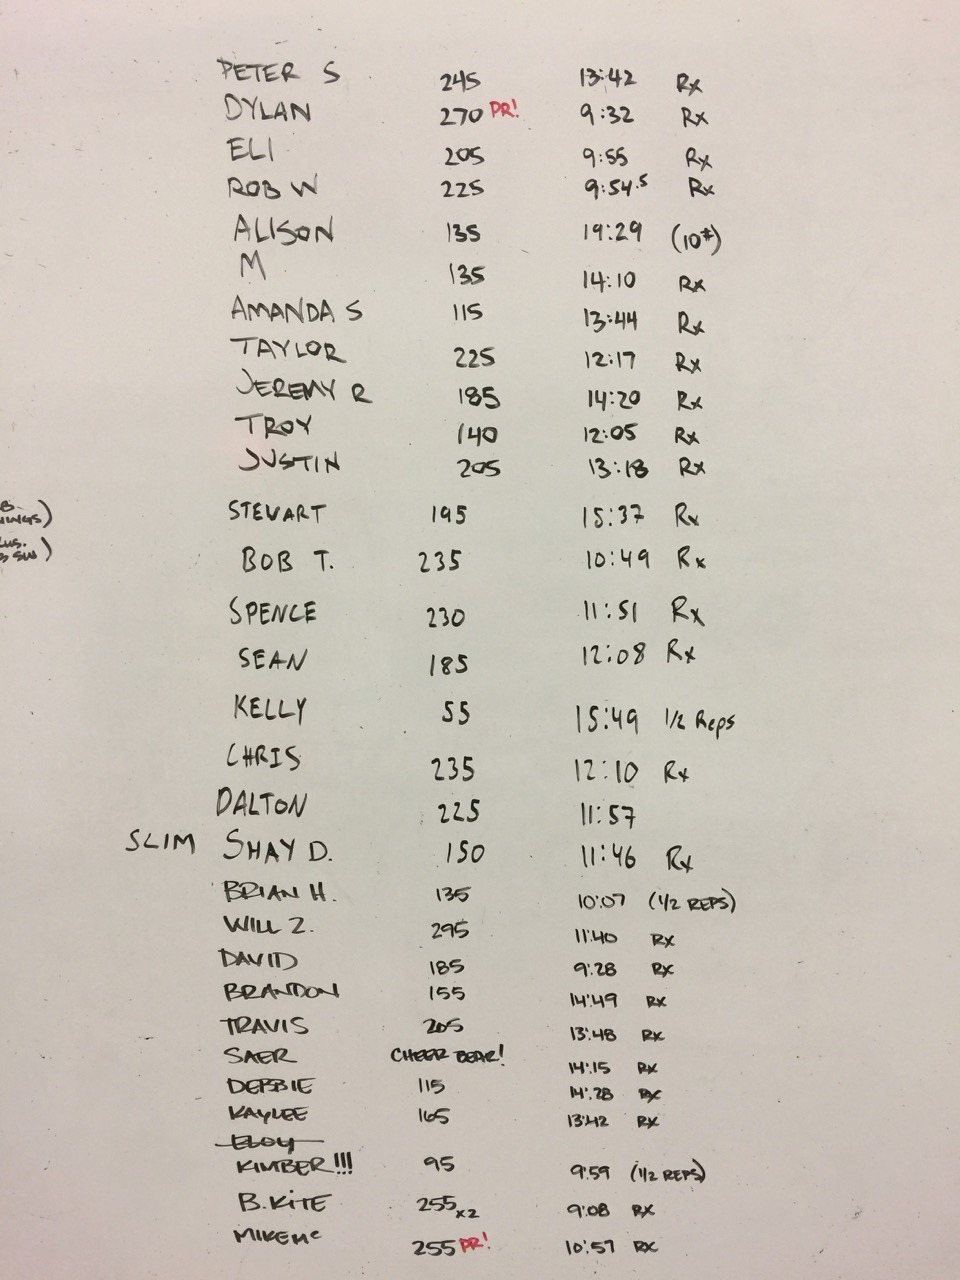 PETER S 245 13:42 Rx
DYLAN 270 PR! 9:32 Rx
ELI 205 9:55 Rx
ROB W 225 9:54.5 Rx
ALISON 135 19:29 (10#)
M 135 14:10 Rx
AMANDA S 115 13:44 Rx
TAYLOR 225 12:17 Rx
JEREMY R 185 14:20 Rx
TROY 140 12:05 Rx
JUSTIN 205 13:18 Rx
STEWART 195 15:37 Rx
BOB T. 235 10:49 Rx
SPENCE 230 11:51 Rx
SEAN 185 12:08 Rx
KELLY 55 15:49 1/2 Reps
CHRIS 235 12:10 Rx
DALTON 225 11:57
SLIM SHAY D. 150 11:46 Rx
BRIAN H. 135 10:07 (1/2 REPS)
WILL Z. 295 11:40 RX
DAVID 185 9:28 RX
BRANDON 155 14:49 RX
TRAVIS 205 13:48 RX
SAER CHEER BEAR! 14:15 RX
DEBBIE 115 14:28 RX
KAYLEE 165 13:42 RX
ELOY
KIMBER!!! 95 9:59 (1/2 REPS)
B. KITE 255 x2 9:08 RX
MIKE MC 255 PR! 10:57 RX